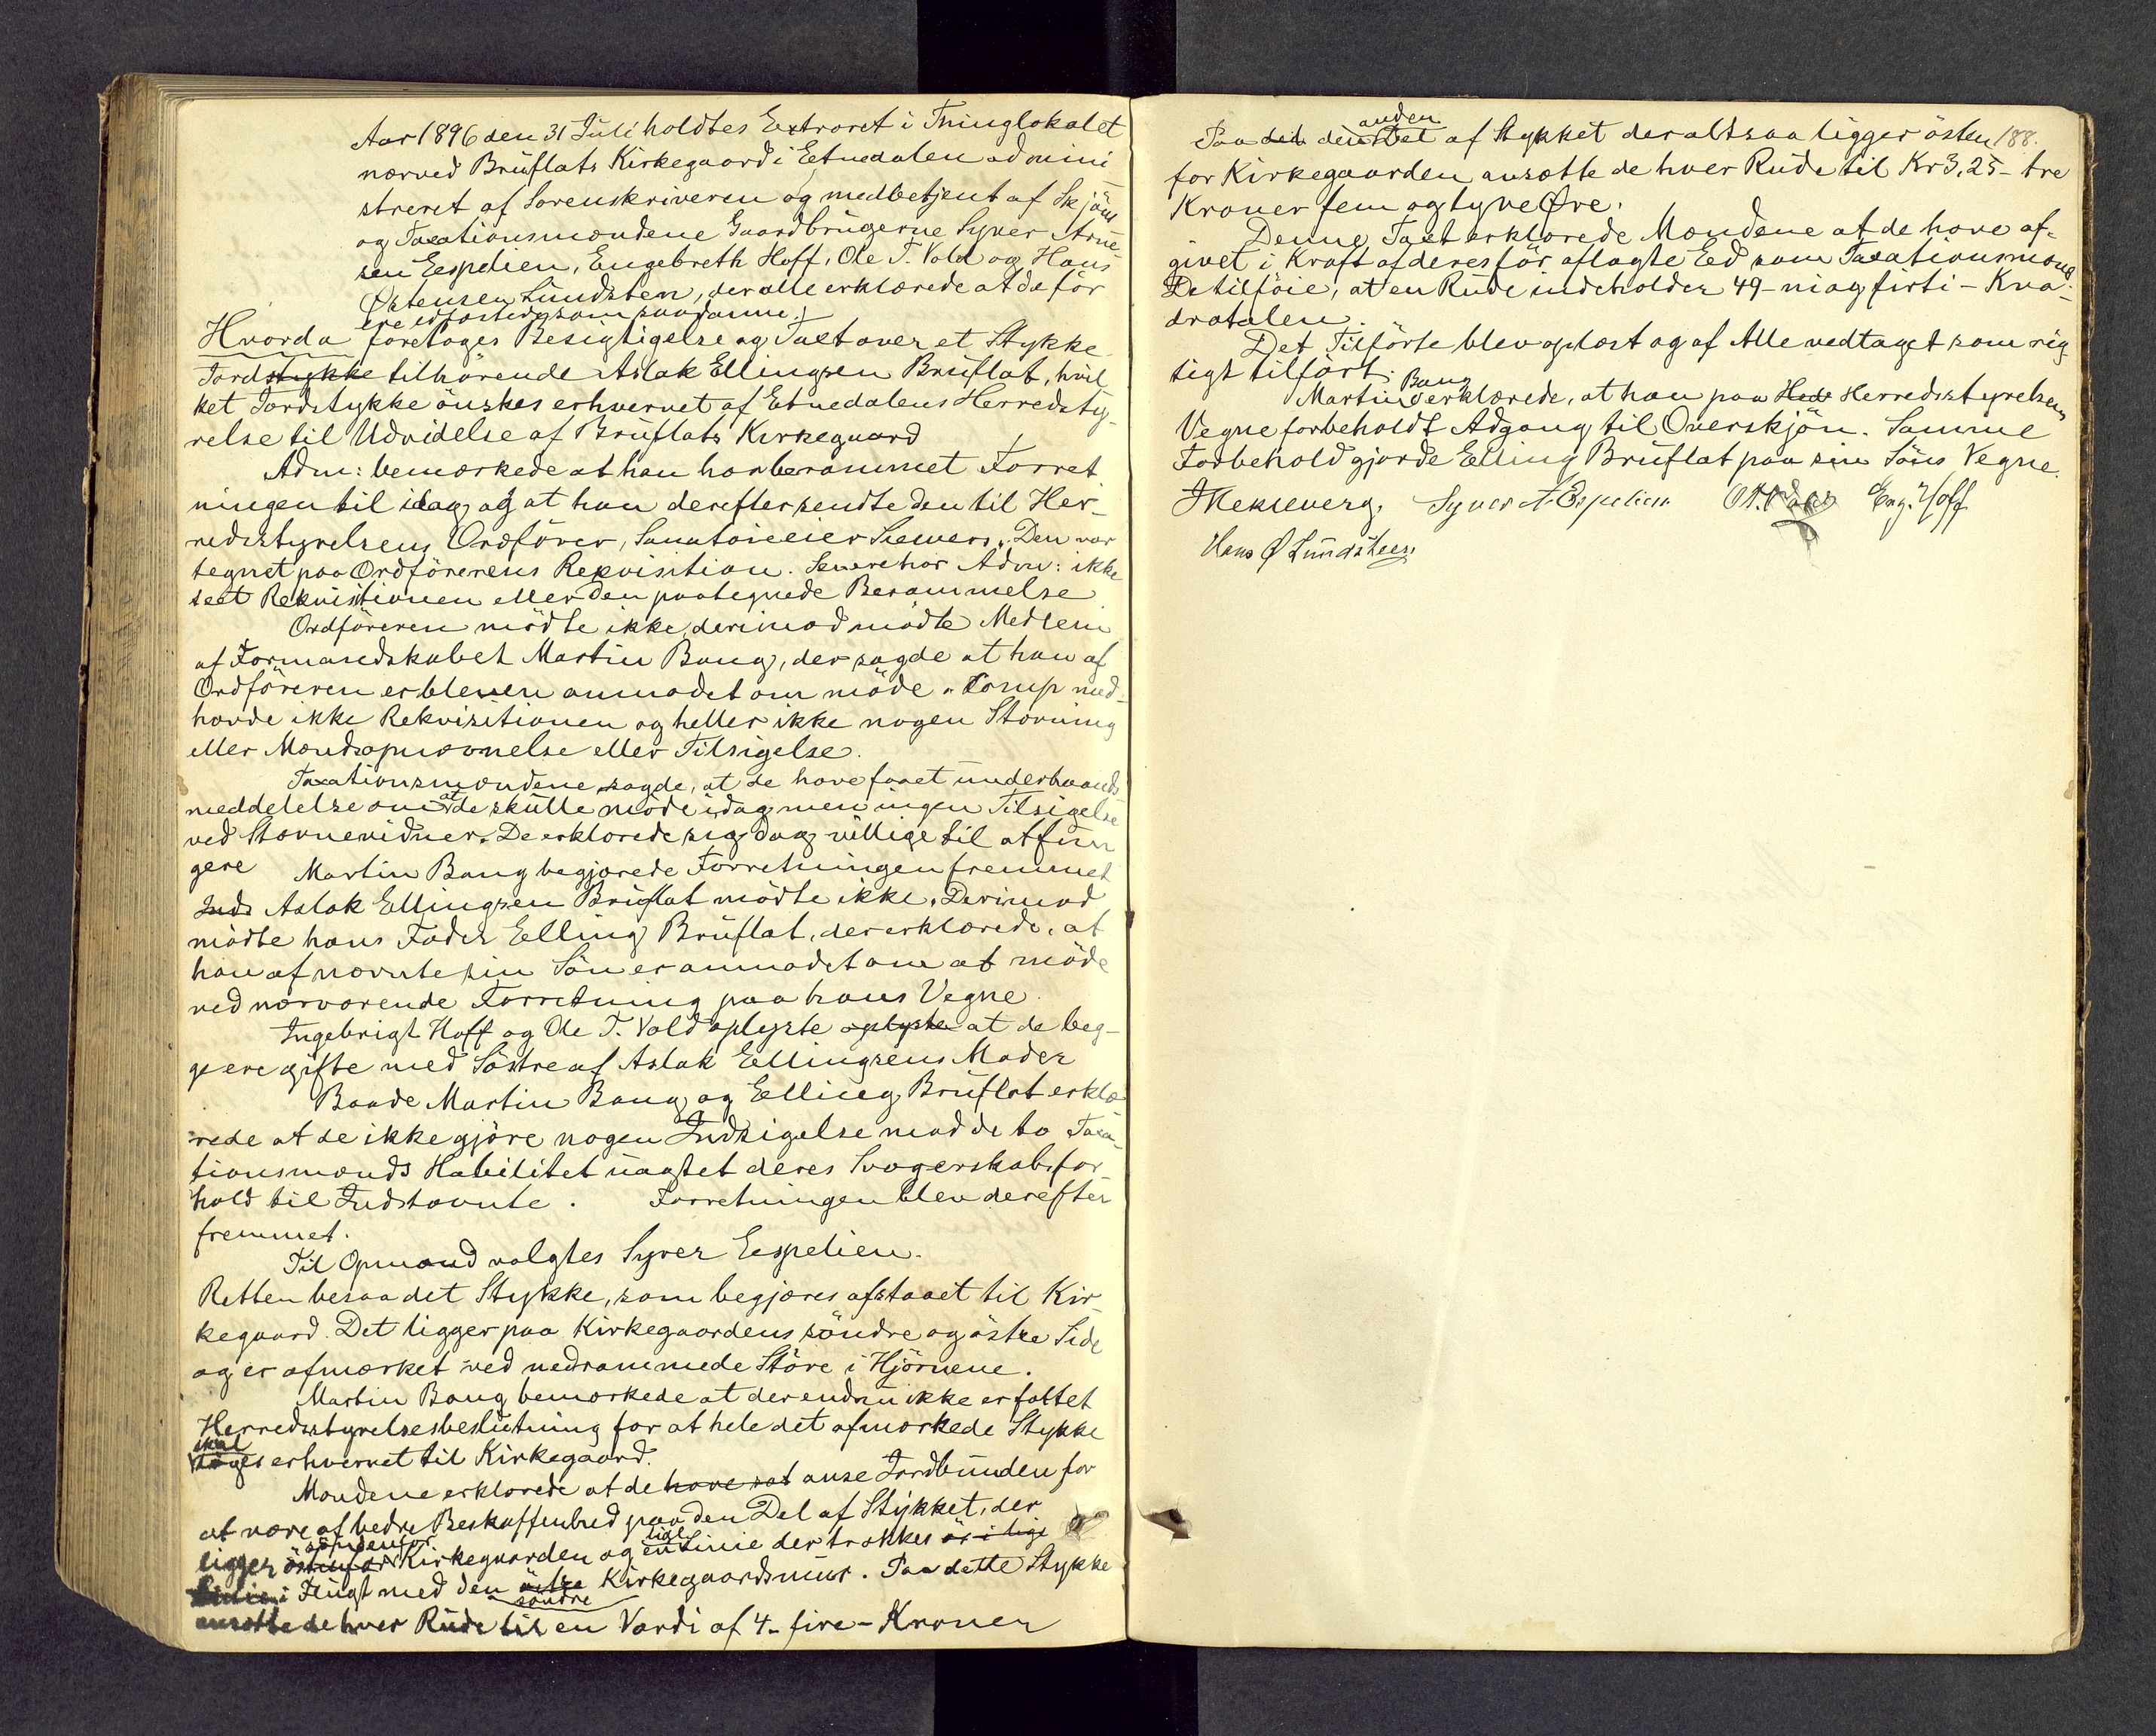 Aar 1896 den 31 Juli holdtes Extraret i Thinglokalet
nærved Bruflats Kirkegaard i Etnedalen admini
streret af Sorenskriveren og medbetjent af Skjöns
og Taxationsmændene Gaardbrugerne Syver Arne
sen Espelien, Engebreth Hoff, Ole T. Vold og Hans
Østensen Lundsten, der alle erklærede at de för
ere edfæstede som saadanne.
Hvorda foretoges Besigtigelse og Taxt over et Stykke
Jordstykke tilhörende Aslak Ellingsen Bruflat, hvil
ket Jordstykke önskes erhvervet af Etnedalens Herredsty-
relse til Udvidelse af Bruflats Kirkegaard
Adm: bemærkede at han har berammet Forret
ningen til idag, og at han derefter sendte den til Her-
redsstyrelsens Ordförer, Sanatorieeier Siewers. Den var
tegnet paa Ordförerens Rekvisition. Senere har Adm: ikke
seet Rekvisitionen eller den paategnede Berammelse
Ordföreren mödte ikke, derimod mödte Medlem
af Formandskabet Martin Bang, der sagde at han af
Ordföreren er bleven anmodet om möde. Komp med-
havde ikke Rekvisitionen og heller ikke nogen Stævning
eller Mændsopnævnelse eller Tilsigelse.
Taxationsmændene sagde, at de have faaet underhaands
meddelelse om at de skulle möde idag men ingen Tilsigelse
ved Stævnevidner. De erklærede sig dog villige til at fun
gere Martin Bang begjærede Forretningen fremmet
Inds Aslak Ellingsen Bruflat mödte ikke. Derimod
mödte hans Fader Elling Bruflat, der erklærede, at
han af nævnte sin Sön er anmodet om at möde
ved nærværende Forretning paa hans Vegne.
Ingebrigt Hoff og Ole T. Vold oplyste oplyste at de beg-
ge ere gifte med Söstre af Aslak Ellingsens Moder
Baade Martin Bang og Elling Bruflat erklæ
rede at de ikke gjöre nogen Indsigelse mod de to Taxa-
tionsmænds Habilitet uagtet deres Svogerskabsfor
hold til Indstævnte. Forretningen blev derefter
fremmet.
Til Opmand valgtes Syver Espelien.
Retten besaa det Stykke, som begjæres afstaaet til Kir-
kegaard. Det ligger paa Kirkegaardens söndre og östre Side
og er afmærket ved nedrammede Störe i Hjörnene.
Martin Bang bemærkede at der endnu ikke er fattet
Herredsstyrelsesbeslutning for at hele det afmærkede Stykke
skal
söges erhvervet til Kirkegaard.
Mændene erklærede at de have sat anse Jordbunden for
at være af bedre Beskaffenhed paa den Del af Stykket, der
söndenfor lige
ligger östenfor Kirkegaarden og en Linie der trækkes är i lige
Linie i Flugt med den östre Kirkegaardsmur. Paa dette Stykke
söndre
ansatte de hver Rude til en Værdi af 4 - fire - Kroner
188.
anden
Paa del den Del af Stykket der altsaa ligger östen
for Kirkegaarden ansatte de hver Rude til Kr 3,25 - tre
Kroner fem og tyve Øre.
Denne Taxt erklærede Mændene at de have af-
givet i Kraft af deres för aflagte Eed som Taxationsmænd
De tilföie, at en Rude indeholder 49 - ni og firti - Kva-
dratalen.
Det Tilförte blev oplæst og af Alle vedtaget som rig
tigt tilfört.
Bang
Martin erklærede, at han paa Heds Herredsstyrelsens
Vegne forbeholdt Adgang til Overskjön. Samme
Forbehold gjorde Elling Bruflat paa sin Söns Vegne.
Syver A Espelien Eng. Hoff
Hans Ø Lundsteen